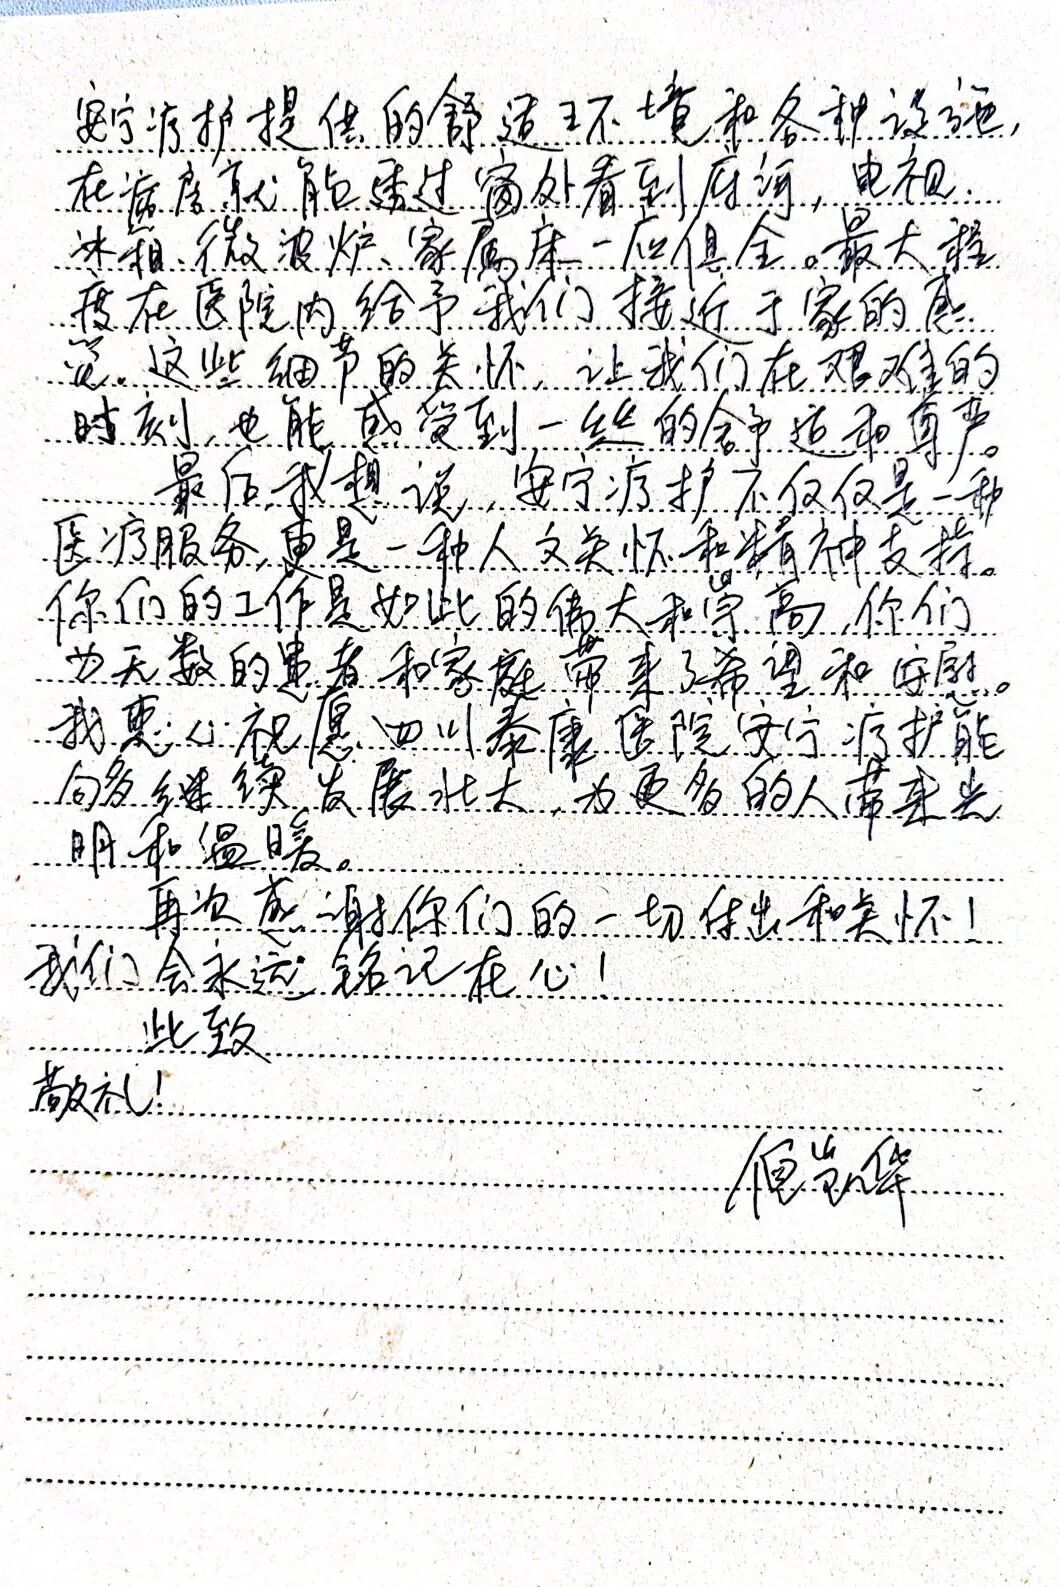 安宁疗护提供的舒适环境和各种设施,
在病房就能透过窗外看到府河,电视.
冰箱、微波炉、家属床一应俱全。最大程
度在医院内给予我们接近于家的感
觉。这些细节的关怀,让我们在艰难的
时刻,也能感受到一丝的舒适和尊严。
最后,我想说,安宁疗护不仅仅是一种
医疗服务,更是一种人文关怀和精神支持。
你们的工作是如此的伟大和崇高,你们
为无数的患者和家庭带来了希望和安慰。
我衷心祝愿四川泰康医院安宁疗护能
够继续发展壮大,为更多的人带来光
明和温暖。
再次感谢你们的一切付出和关怀!
我们会永远铭记在心!
此致
敬礼!
华